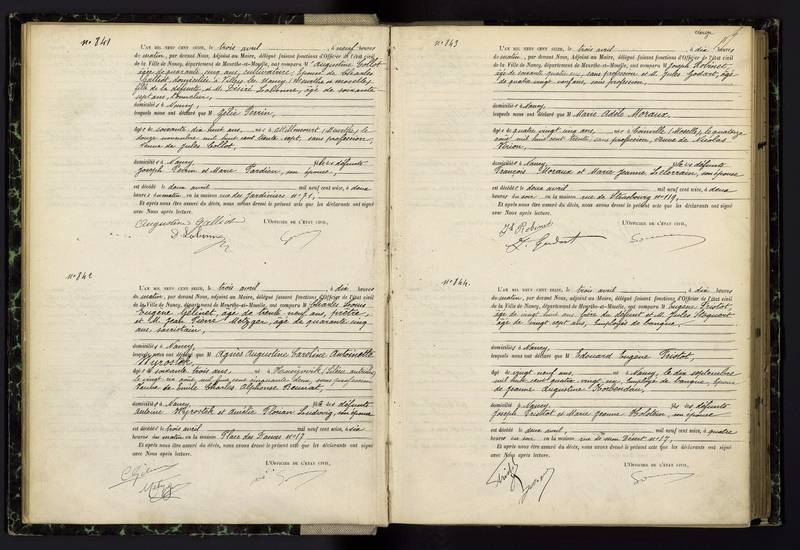 N° 841
L'AN MIL NEUF CENT SEIZE, le trois avril, à neuf heures
du matin, par devant Nous, adjoint au Maire, délégué faisant fonctions d'Officier de l'état civil
de la Ville de Nancy, département de Meurthe-et-Moselle, ont comparu M Augustine Collot
âgée de quarante cinq ans, cultivatrice, épouse de Charles
Galliot, domiciliés à Villers les Nancy (Meurthe et Moselle)
fille de la défunte, et M. Désiré Labonne, âgé de soixante
sept ans,
domiciliés à Nancy,
lesquels nous ont déclaré que M Zélie Perrin,
âgée de soixante dix huit ans, née à (Meurthe) le
douze novembre mil huit cent trente sept, sans profession,
veuve de Jules Collot,
domiciliée à Nancy, fille des défunts
Joseph Perrin et Marie Pardieu, son épouse,
est décédée le deux avril mil neuf cent seize, à deux
heures du matin en la maison rue des Jardiniers n° 71,
Et après nous être assuré du décès, nous avons dressé le présent acte que les déclarants ont signé
avec Nous après lecture.
L'OFFICIER DE L'ÉTAT CIVIL,
Augustine Galliot
D Labonne
N° 842
L'AN MIL NEUF CENT SEIZE, le trois avril, à dix heures
du matin, par devant Nous, adjoint au Maire, délégué faisant fonctions d'Officier de l'état civil
de la Ville de Nancy, département de Meurthe-et-Moselle, ont comparu M Charles Louis
Eugène Gélinet, âgé de trente neuf ans, prêtre,
et M. Jean Pierre Metzger, âgé de quarante cinq
ans, sacristain,
domiciliés à Nancy,
lesquels nous ont déclaré que M Agnès Augustine Caroline Antoinette
Wyrostek,
âgée de soixante trois ans, née à (Silésie autrichienne)
le vingt six août mil huit cent cinquante deux, sans profession
veuve de Emile Charles Alphonse
domiciliée à Nancy, fille des défunts
Antoine Wyrostek et Amélie Florian Ludwig, son épouse
est décédée le trois avril mil neuf cent seize, à dix
heures du matin en la maison Place des Dames n° 17
Et après nous être assuré du décès, nous avons dressé le présent acte que les déclarants ont signé
avec Nous après lecture.
L'OFFICIER DE L'ÉTAT CIVIL,
N° 843
L'AN MIL NEUF CENT SEIZE, le trois avril, à dix heures
du matin, par devant Nous, adjoint au Maire, délégué faisant fonctions d'Officier de l'état civil
de la Ville de Nancy, département de Meurthe-et-Moselle, ont comparu M Joseph Robinet
âgé de soixante quatre ans, sans profession et M. Jules Godart, âgé
de quatre vingt un ans, sans profession,
domiciliés à Nancy
lesquels nous ont déclaré que M Marie Adèle Moraux,
âgée de quatre vingt cinq ans, née à Coinville (Moselle), le quatorze
août mil huit cent trente, sans profession, veuve de Nicolas
domiciliée à Nancy fille des défunts
François Moraux et Marie Jeanne Lelorrain, son épouse
est décédée le deux avril mil neuf cent seize, à deux
heures du soir en la maison rue de Strasbourg n° 119,
Et après nous être assuré du décès, nous avons dressé le présent acte que les déclarants ont signé
avec Nous après lecture.
L'OFFICIER DE L'ÉTAT CIVIL,
Jh Robinet
J. Godart
N° 844.
L'AN MIL NEUF CENT SEIZE, le trois avril, à dix heures
du matin, par devant Nous, adjoint au Maire, délégué faisant fonctions d'Officier de l'état civil
de la Ville de Nancy, département de Meurthe-et-Moselle, ont comparu M Eugène Pristot,
âgé de vingt huit ans, frère du défunt et M. Jules
âgé de vingt sept ans, employés de banque,
domiciliés à Nancy,
lesquels nous ont déclaré que M Edouard Eugène Pristot,
âgé de vingt neuf ans, né à Nancy, le dix septembre
mil huit cent quatre vingt six, employé de banque, époux
de Jeanne Augustine
domicilié à Nancy, fils des défunts
Joseph Pristot et Marie Jeanne Holstein, son épouse
est décédé le deux avril, mil neuf cent seize, à quatre
heures du soir en la maison rue de mon Désert n° 17,
Et après nous être assuré du décès, nous avons dressé le présent acte que les déclarants ont signé
avec Nous après lecture.
L'OFFICIER DE L'ÉTAT CIVIL,